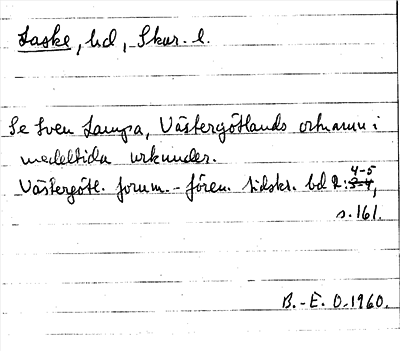 Laske, hd, Skar. l.
Se Sven Lampa, Västergötlands ortnamn i
medeltida urkunder.
Västergötl. fornm.-fören. tidskr. bd 2: 3-4 4-5,
s. 161.
B.-E. O. 1960.